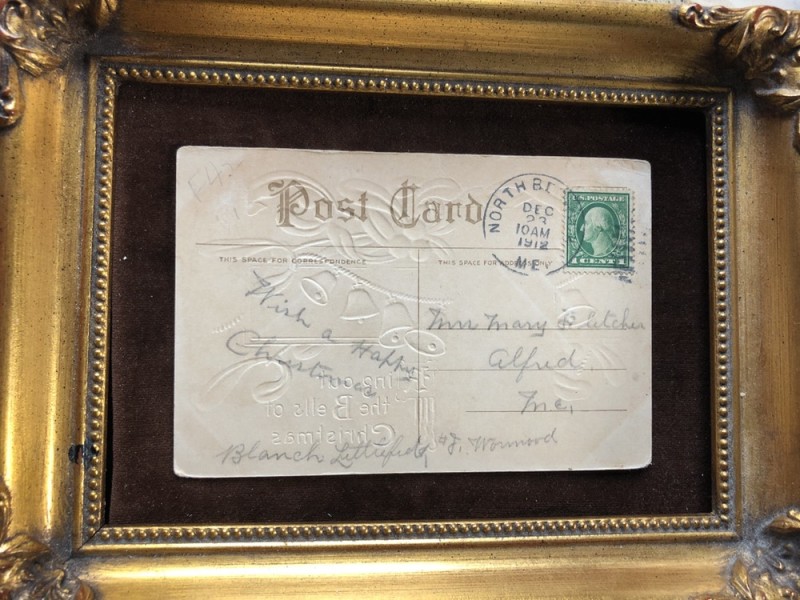 Post Card
NORTH BE
DEC
23
10AM
1912
ME
U.S. POSTAGE
1 CENT 1
THIS SPACE FOR CORRESPONDENCE
THIS SPACE FOR ADDRESS ONLY
Wish a Happy
Christmas
Mrs Mary Fletcher
Alfred
Me,
Ring out
the Bells of
Christmas
Blanch Littlefield